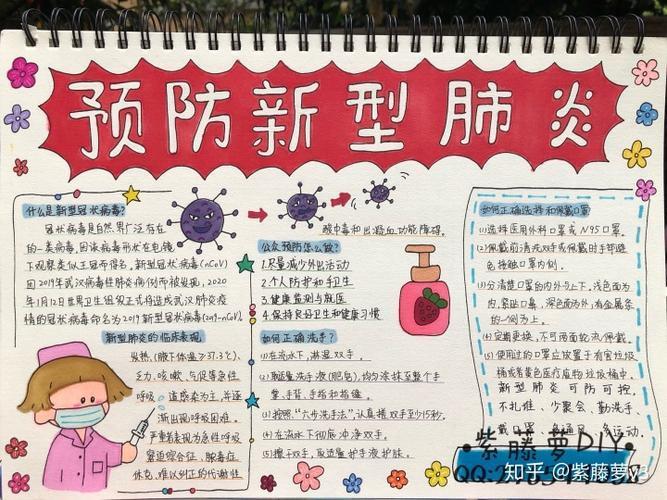 预防新型肺炎
什么是新型冠状病毒?
冠状病毒是自然界广泛存在
的一类病毒,因该病毒形状在电镜
下观察类似王冠而得名。新型冠状病毒(nCoV)
因2019年武汉病毒性肺炎病例而被发现,2020
年1月12日世界卫生组织正式将造成武汉肺炎疫
情的冠状病毒命名为2019新型冠状病毒(2019-nCoV)。
新型肺炎的临床表现
发热,(腋下体温≥37.3℃)、
乏力、咳嗽、气促等急性
呼吸道感染为主,并逐
渐出现呼吸困难,
严重者表现为急性呼吸
窘迫综合征、脓毒症
休克、难以纠正的代谢性
酸中毒和出凝血功能障碍。
公众预防怎么做?
1.尽量减少外出活动
2.个人防护和手卫生
3.健康监测与就医
4.保持良好卫生和健康习惯
如何正确洗手?
(1)在流水下,淋湿双手。
(2)取适量洗手液(肥皂),均匀涂抹至整个手
掌、手背、手指和指缝。
(3)按照“六步洗手法”,认真搓双手至少15秒。
(4)在流水下彻底冲净双手。
(5)擦干双手,取适量护手液护肤。
如何正确选择和佩戴口罩
(1)选择医用外科口罩或N95口罩。
(2)佩戴前清洗双手或佩戴时手部避
免接触口罩内侧。
(3)分清楚口罩的内外与上下,浅色面为
内,紧贴口鼻,深色面为外;有金属条
的一侧为上。
(4)定期更换,不可两面轮流佩戴。
(5)使用过的口罩应放置于有害垃圾
桶或者黄色医疗废物垃圾桶中。
新型肺炎可防可控,
不扎推、少聚会、勤洗手、
戴口罩、多通风、多运动。
紫藤萝DIY
QQ:2
知乎 @紫藤萝